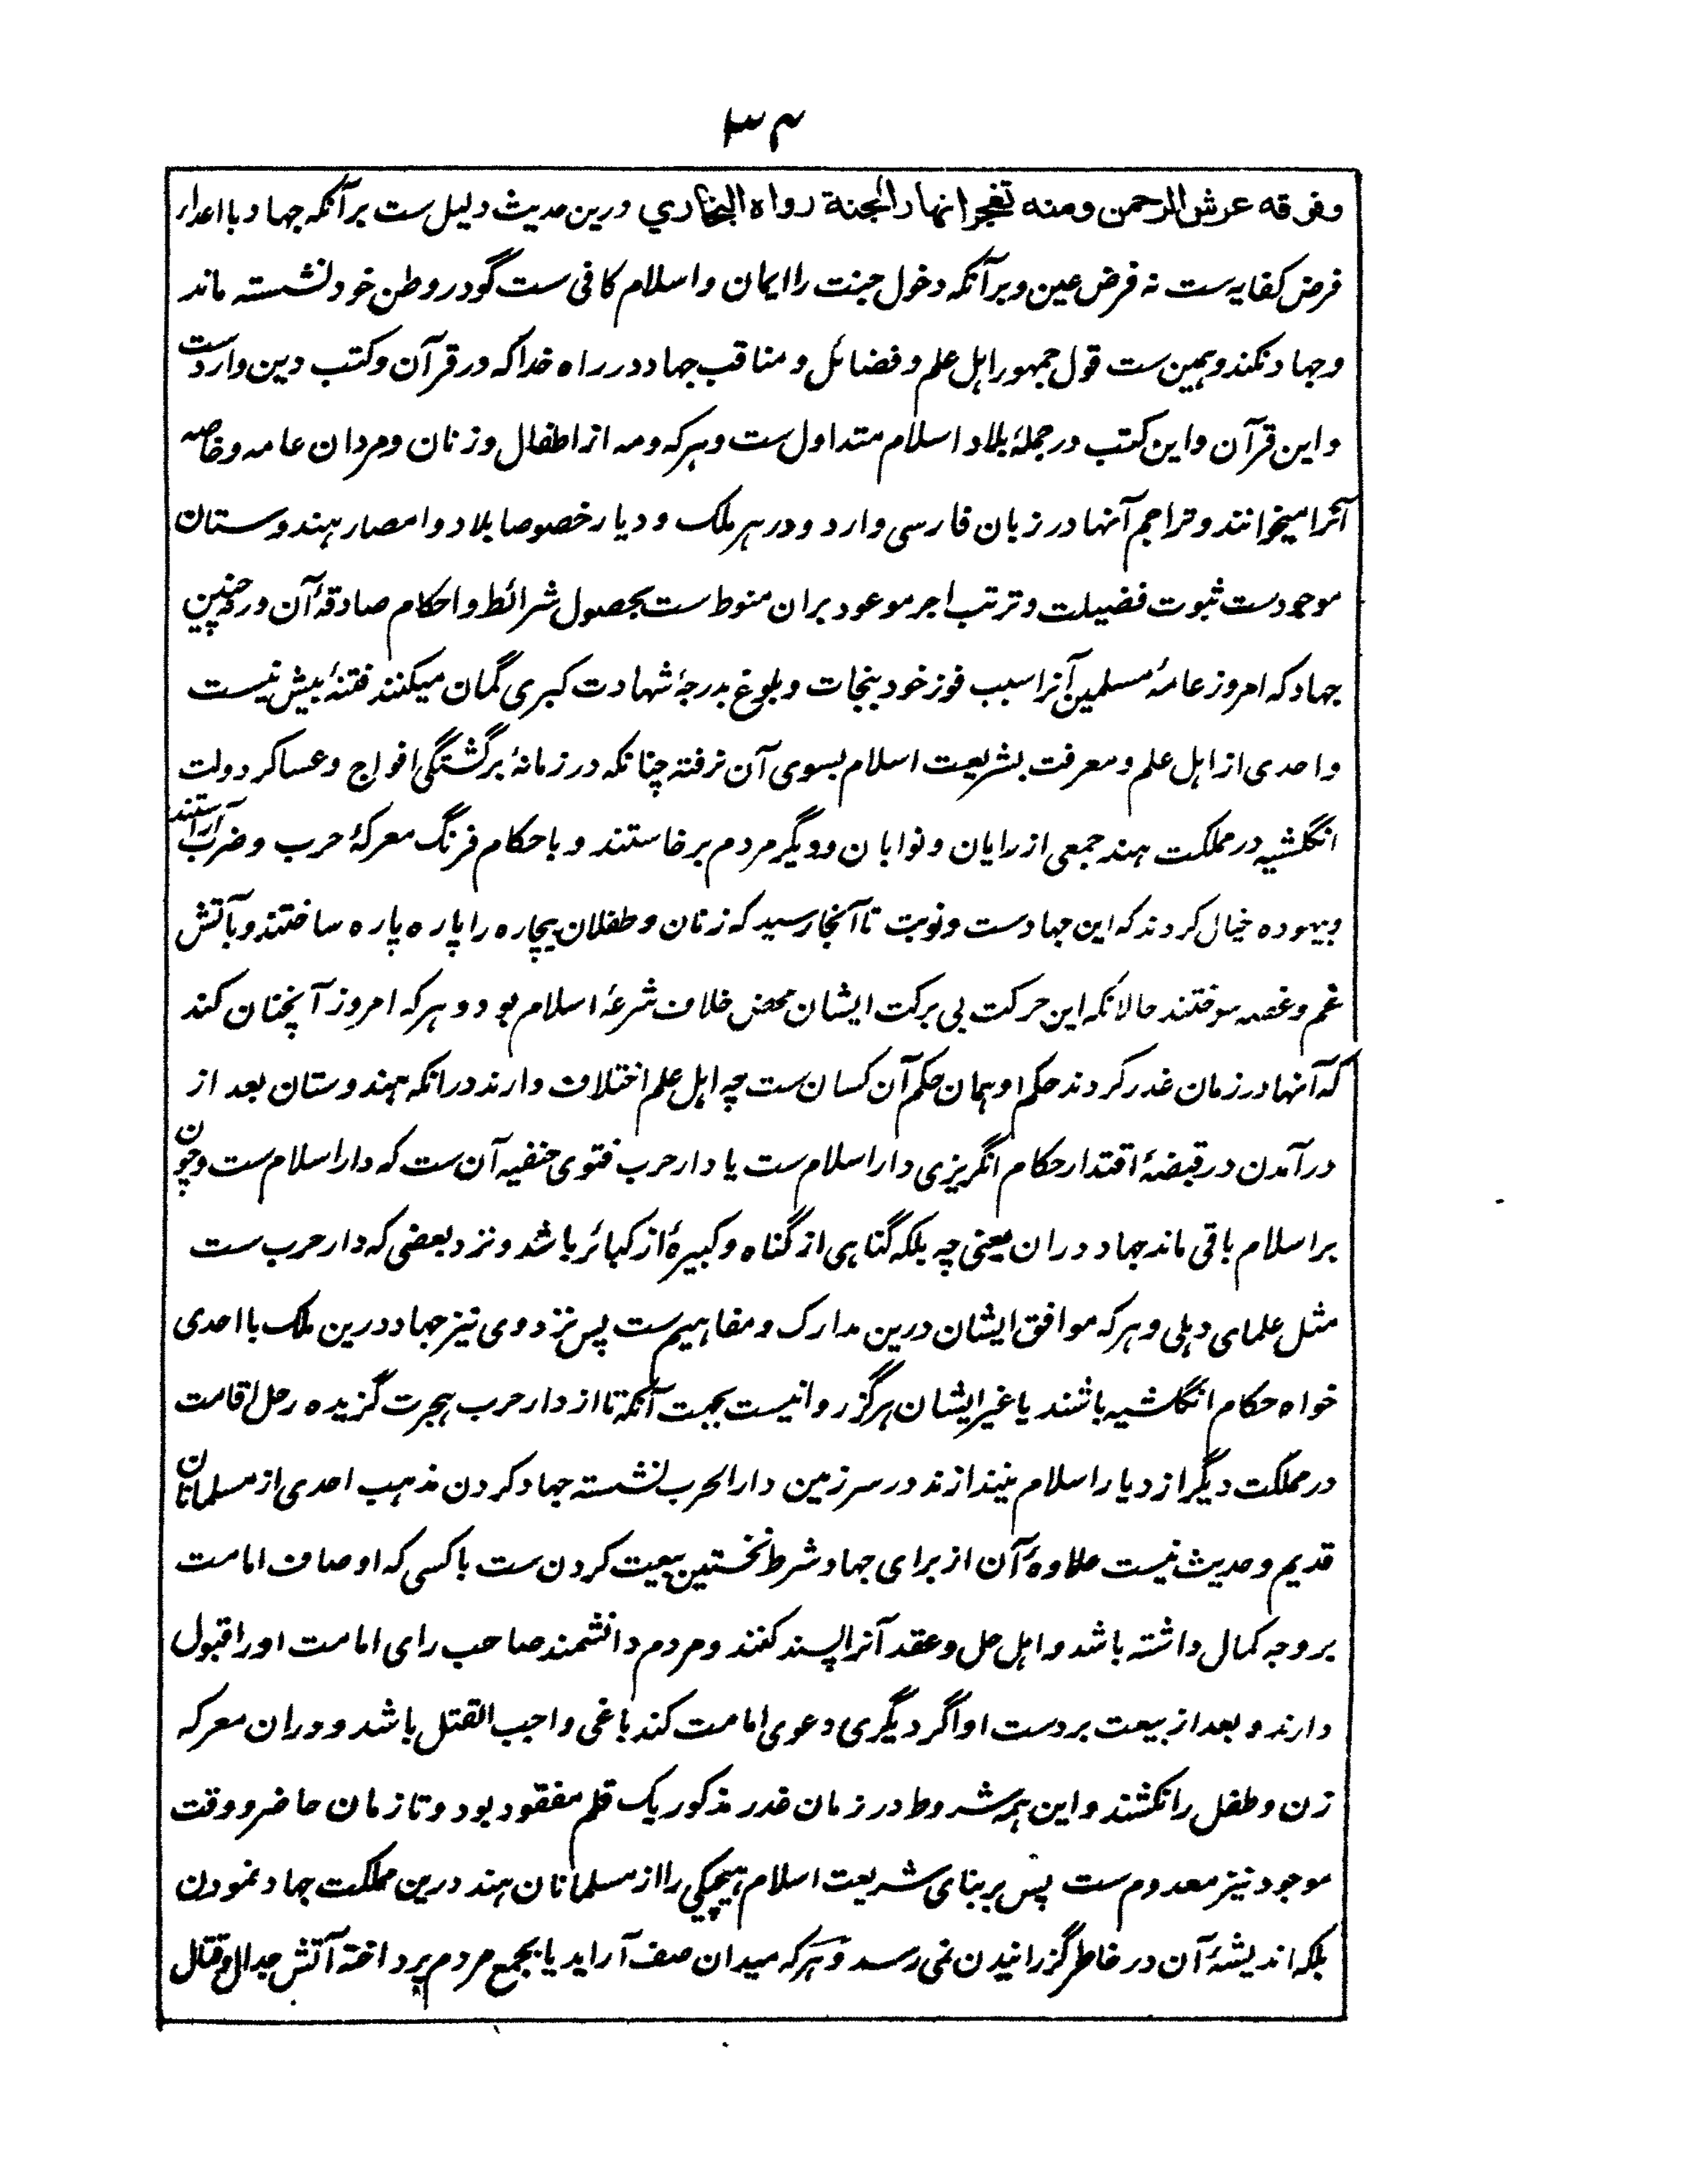 ۳۴
وفوقه عرش الرحمن ومنه تفجر انهار الجنة رواه البخاري درین حدیث دلیل ست برآنکه جهاد با اعدا
فرض کفایه ست نه فرض عین و برآنکه دخول جنت را ایمان و اسلام کافی ست گو در وطن خود نشسته ماند
و جهاد نکند و همین ست قول جمهور اهل علم و فضائل و مناقب جهاد در راه خدا که در قرآن و کتب دین وارد ست
و این قرآن و این کتب در جملهٔ بلاد اسلام متداول ست و هر که و مه از اطفال و زنان و مردان عامه و خاصه
آنرا میخوانند و تراجم آنها در زبان فارسی وارد و در هر ملک و دیار خصوصا بلاد و امصار هندوستان
موجود ست ثبوت فضیلت و ترتب اجر موعود بران منوط ست بحصول شرائط و احکام صادقهٔ آن ورنه چنین
جهاد که امروز عامهٔ مسلمین آنرا سبب فوز خود بنجات و بلوغ بدرجهٔ شهادت کبری گمان میکنند فتنهٔ بیش نیست
واحدی از اهل علم و معرفت بشریعت اسلام بسوی آن نرفته چنانکه در زمانهٔ برگشتگی افواج و عساکر دولت
انگلشیه در مملکت هند جمعی از رایان و نوابان و دیگر مردم برخاستند و با حکام فرنگ معرکهٔ حرب و ضرب آراستند
و بیهوده خیال کردند که این جهاد ست و نوبت تا آنجا رسید که زنان و طفلان بیچاره را پاره پاره ساختند و بآتش
غم و غصه سوختند حالانکه این حرکت بی برکت ایشان محض خلاف شرعهٔ اسلام بود و هر که امروز آنچنان کند
که آنها در زمان غدر کردند حکم او همان حکم آن کسان ست چه اهل علم اختلاف دارند در آنکه هندوستان بعد از
در آمدن در قبضهٔ اقتدار حکام انگریزی دار اسلام ست یا دار حرب فتوی حنفیه آن ست که دار اسلام ست و چون
بر اسلام باقی ماند جهاد در ان معنی چه بلکه گناهی از گناه و کبیرهٔ از کبائر باشد و نزد بعضی که دار حرب ست
مثل علمای دهلی و هر که موافق ایشان درین مدارک و مفاهیم ست پس نزد وی نیز جهاد درین ملک با احدی
خواه حکام انگلشیه باشند یا غیر ایشان هرگز روا نیست بجهت آنکه تا از دار حرب هجرت گزیده رحل اقامت
در مملکت دیگر از دیار اسلام نیندازند در سرزمین دار الحرب نشسته جهاد کردن مذهب احدی از مسلمانان
قدیم و حدیث نیست علاوهٔ آن از برای جهاد شرط نخستین بیعت کردن ست با کسی که اوصاف امامت
بر وجه کمال داشته باشد و اهل حل و عقد آنرا پسند کنند و مردم دانشمند صاحب رای امامت او را قبول
دارند و بعد از بیعت بر دست او اگر دیگری دعوی امامت کند باغی واجب القتل باشد و در ان معرکه
زن و طفل را نکشند و این همه شروط در زمان غدر مذکور یک قلم مفقود بود و تا زمان حاضر و وقت
موجود نیز معدوم ست پس بر بنای شریعت اسلام هیچیکی را از مسلمانان هند درین مملکت جهاد نمودن
بلکه اندیشهٔ آن در خاطر گزرانیدن نمی رسد و هر که میدان صف آراید یا بجمع مردم پرداخته آتش جدال و قتال